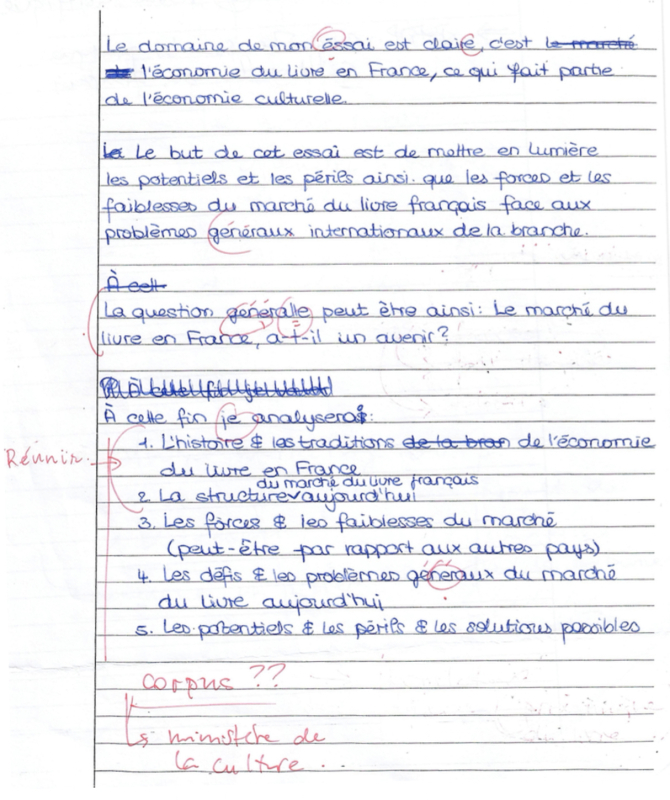 Le domaine de mon éssai est claire, c'est le marché
de l'économie du livre en France, ce qui fait partie
de l'économie culturelle.
Le Le but de cet essai est de mettre en lumière
les potentiels et les périls ainsi que les forces et les
faiblesses du marché du livre français face aux
problèmes généraux internationaux de la branche.
À cett
La question générale peut être ainsi: Le marché du
livre en France, a-t-il un avenir?
À cette fin je analyserai:
1. L'histoire & les traditions de la bran de l'économie
Réunir
du livre en France
du marché du livre français
2. La structure aujourd'hui
3. Les forces & les faiblesses du marché
(peut-être par rapport aux autres pays)
4. Les défis & les problèmes généraux du marché
du livre aujourd'hui
5. Les potentiels & les périls & les solutions possibles
corpus ??
ministère de
la culture ..